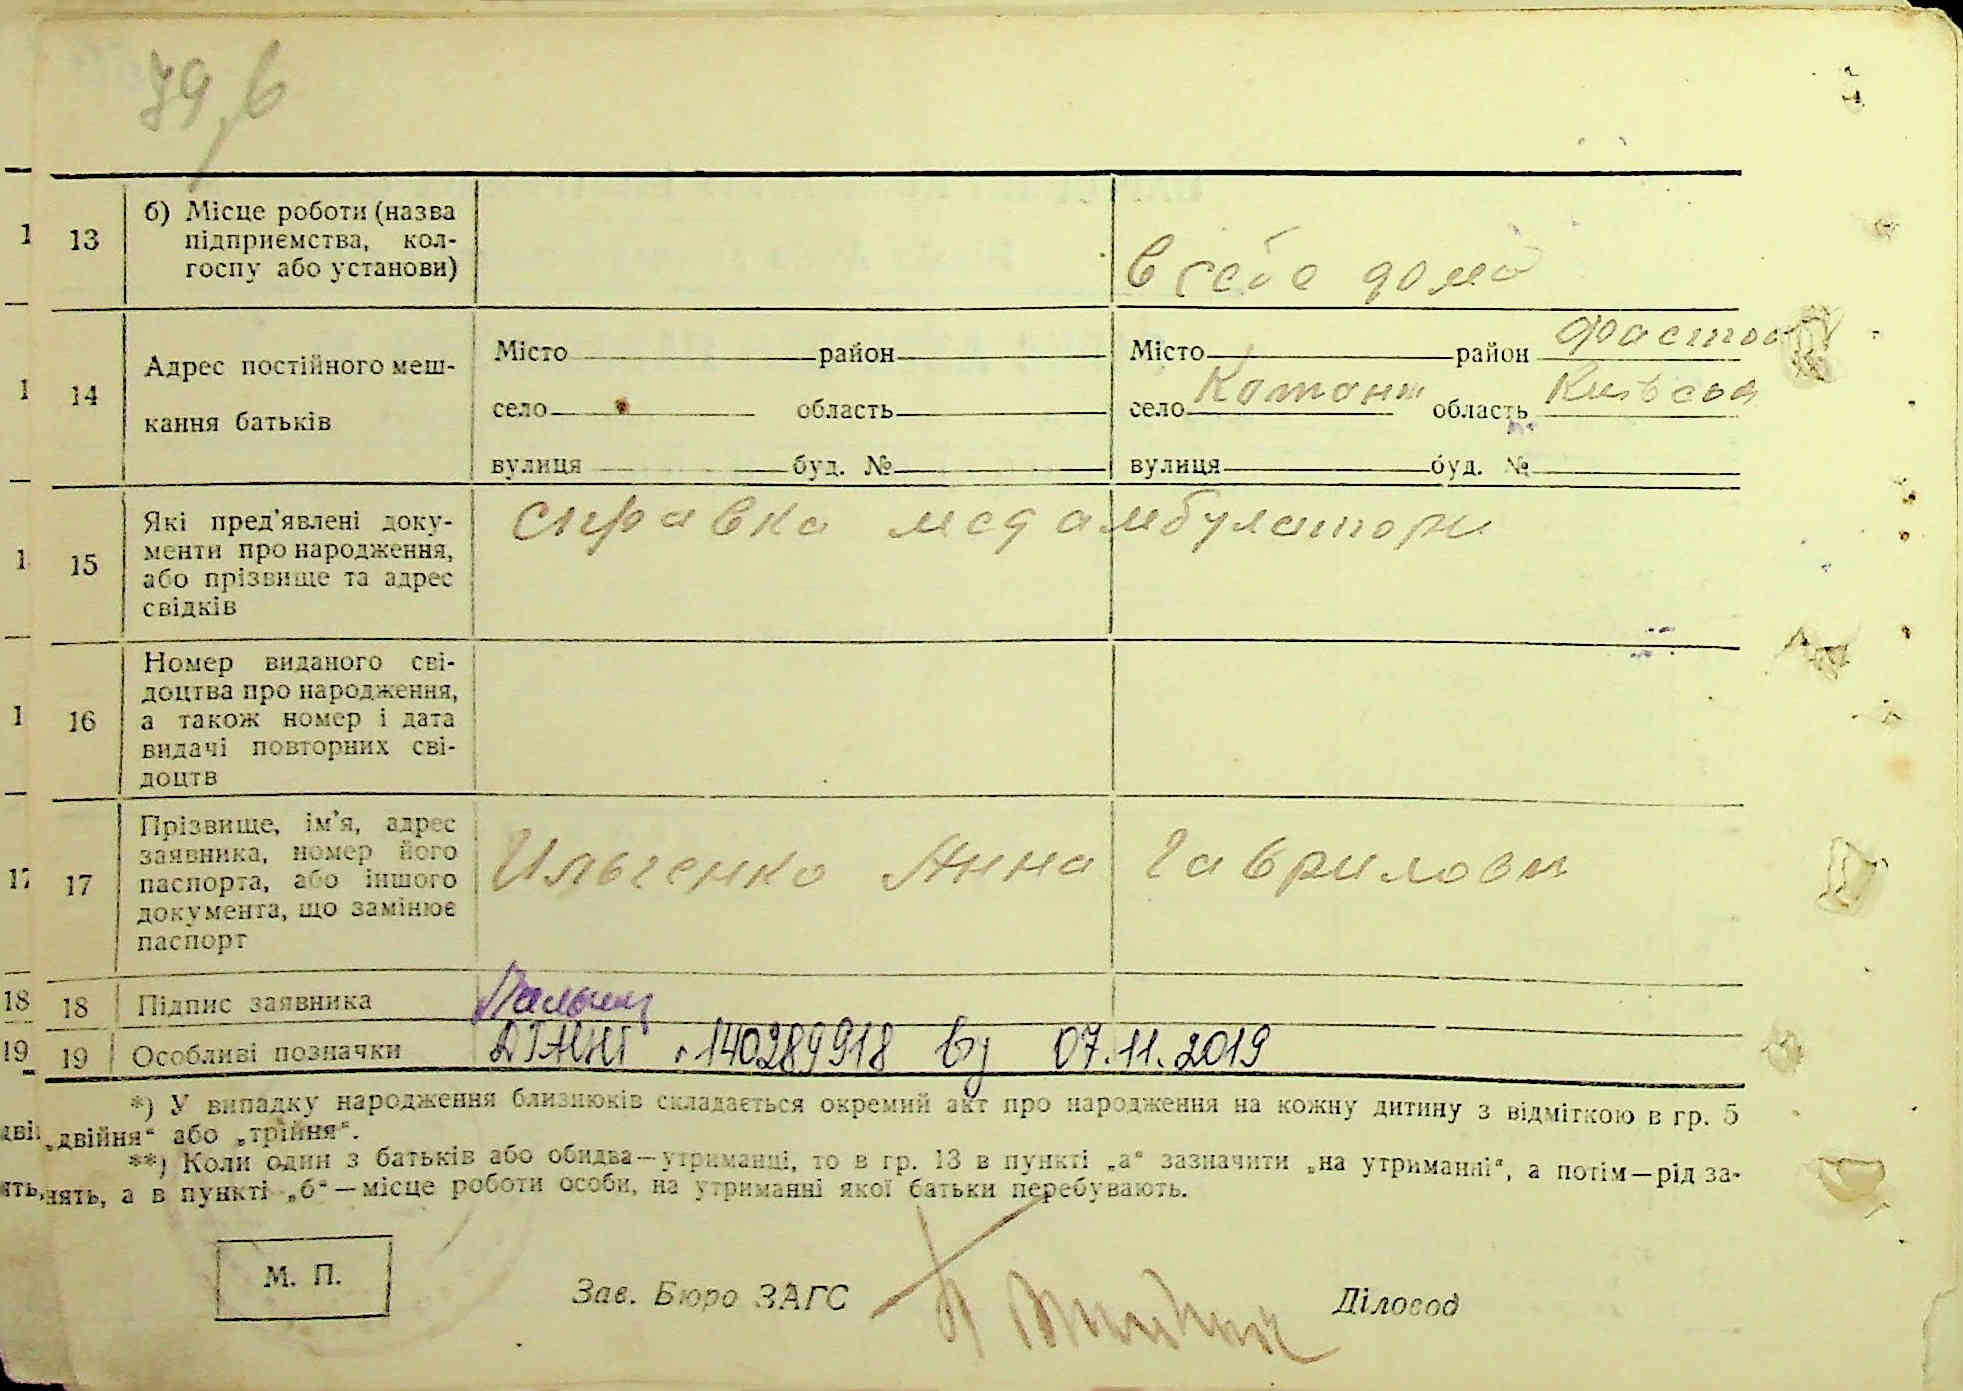 79,б
13 б) Місце роботи (назва
підприємства, кол-
госпу або установи)
в себе дома
14 Адрес постійного меш-
кання батьків
Місто район Місто район Фастов
село область село область Київська
вулиця буд. № вулиця буд. №
15 Які пред'явлені доку-
менти про народження,
або прізвище та адрес
свідків
справка мед амбулатори
16 Номер виданого сві-
доцтва про народження,
а також номер і дата
видачі повторних сві-
доцтв
17 Прізвище, ім'я, адрес
заявника, номер його
паспорта, або іншого
документа, що замінює
паспорт
Ильченко Анна Гавриловн
18 18 Підпис заявника
19 19 Особливі позначки 140289918 07.11.2019
*) У випадку народження близнюків складається окремий акт про народження на кожну дитину з відміткою в гр. 5
„двійня“ або „трійня“.
**) Коли один з батьків або обидва—утриманці, то в гр. 13 в пункті „а“ зазначити „на утриманні“, а потім—рід за-
нять, а в пункті „б“—місце роботи особи, на утриманні якої батьки перебувають.
М. П.
Зав. Бюро ЗАГС Діловод